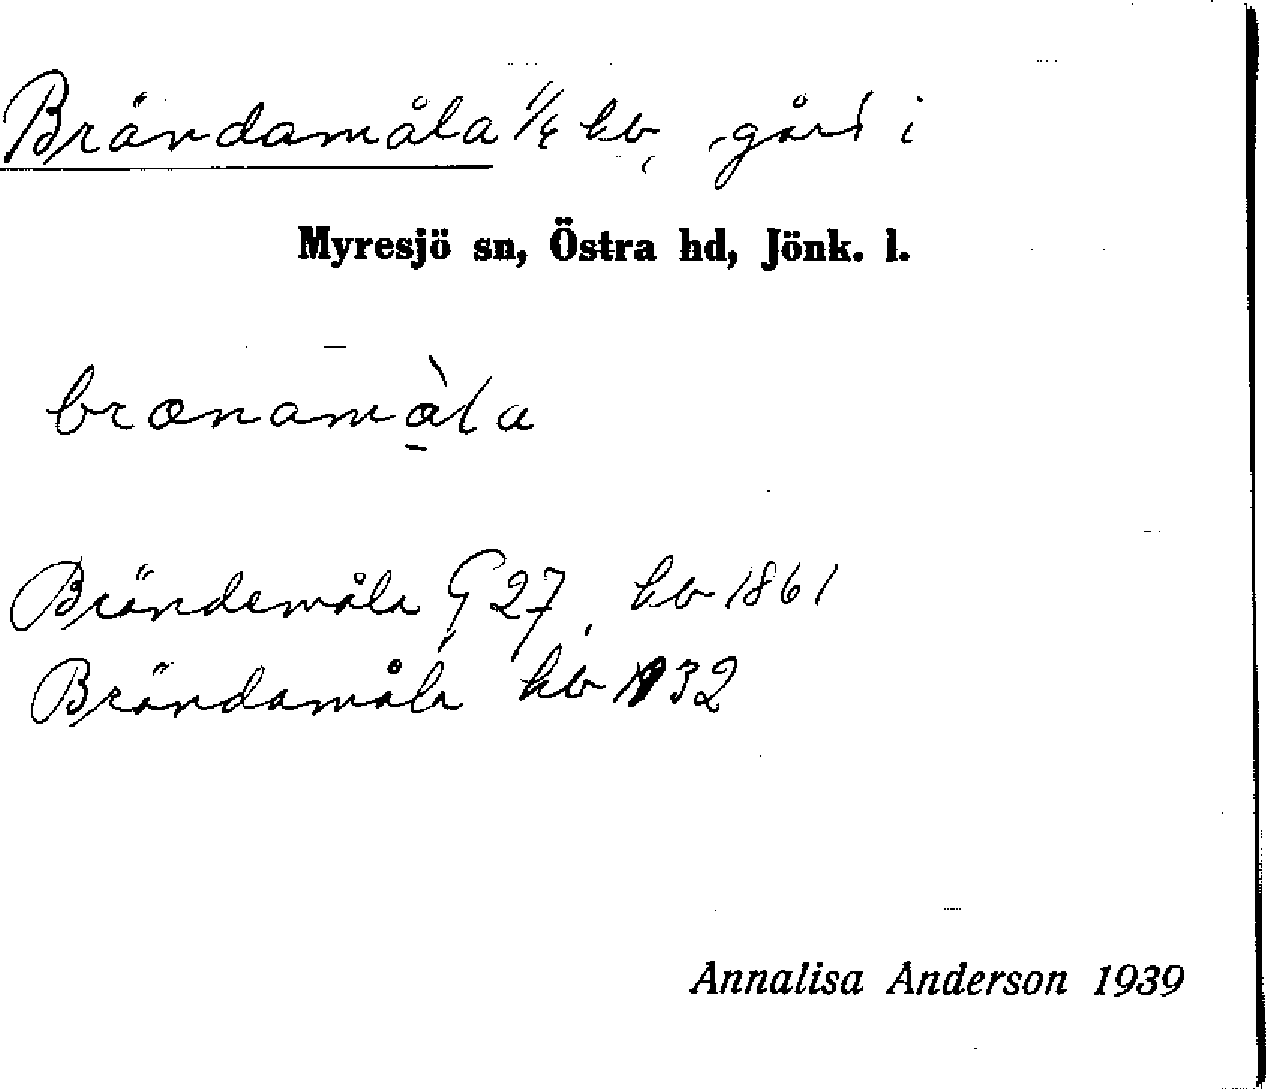 Brändamåla 1/4 kb, gård i
Myresjö sn, Östra hd, Jönk. l.
brænamàla
Brändemåla G 27, kb 1861
Brändamåla kb 1932
Annalisa Anderson 1939